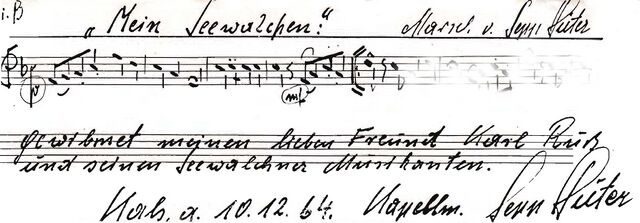 i. B „Mein Seewalchen:" Marsch v. Sepp Süter
p mf
gewidmet meinen lieben Freund Karl Ruß
und seinen Seewalchner Musikanten.
a. 10.12.64. Kapellm. Sepp Süter